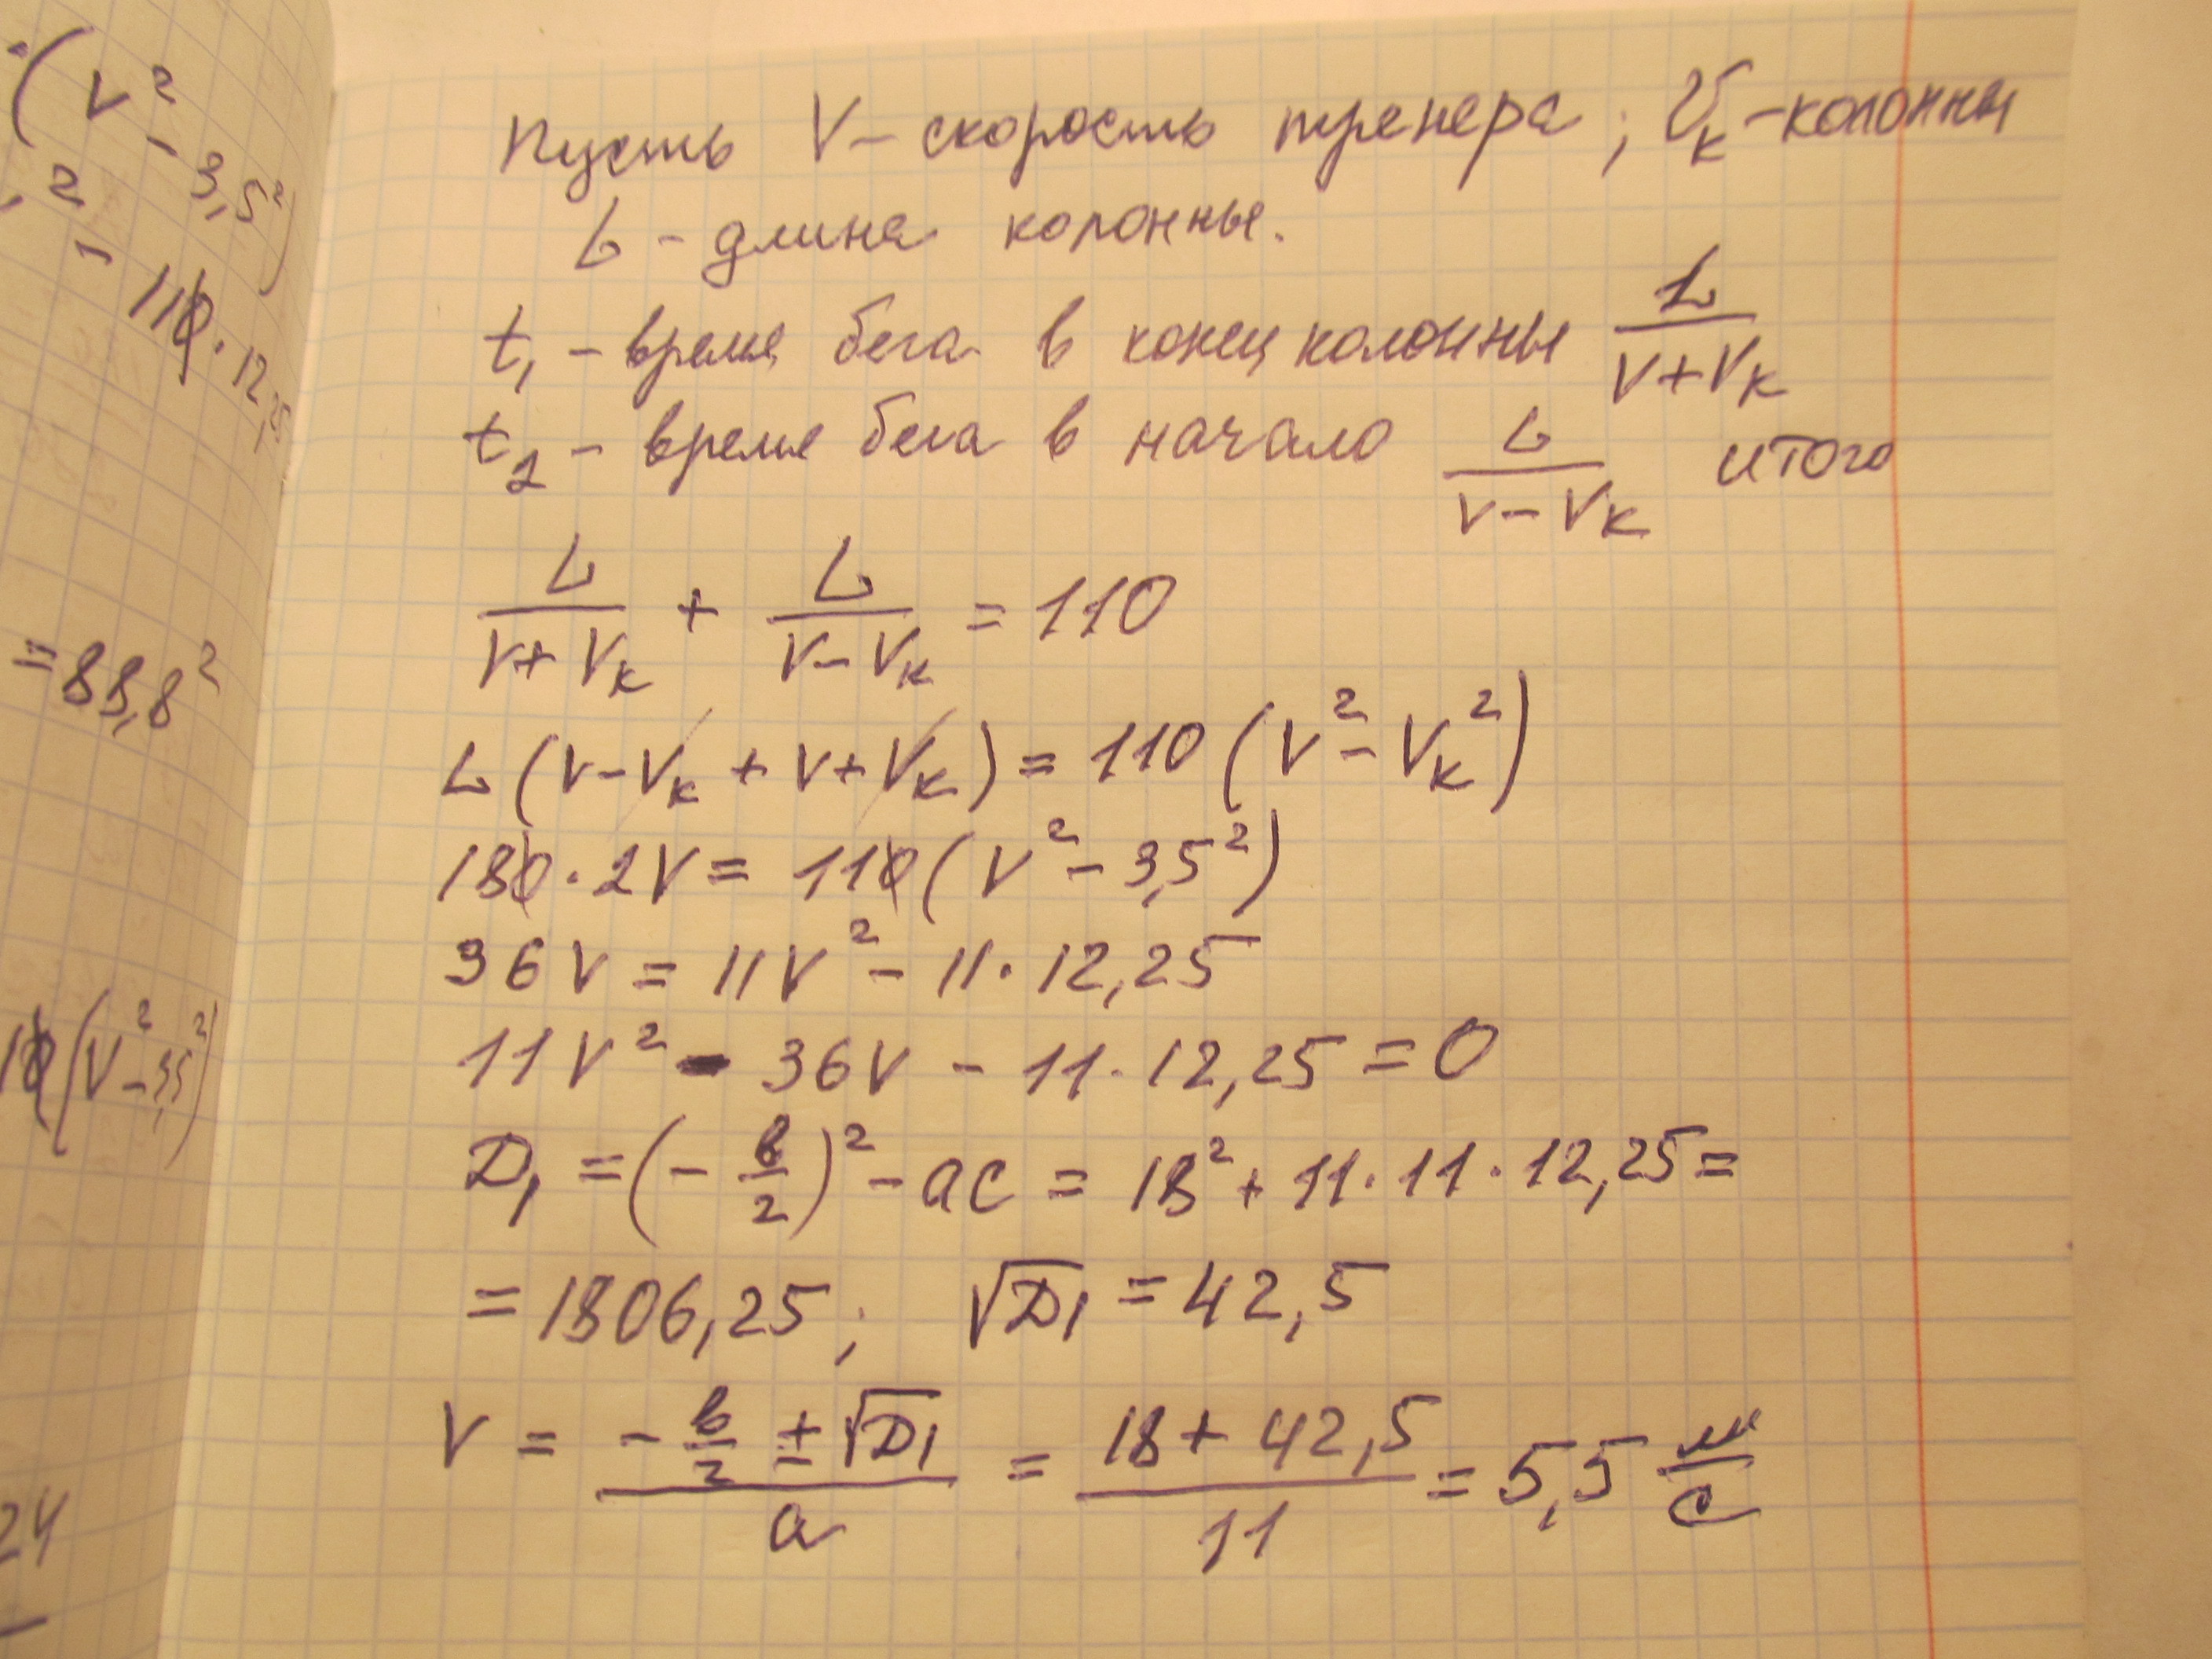 (V² - 3,5²)
² - 110 · 12,25
= 88,8²
10(V² - 3,5²)
24
Пусть V – скорость тренера; Vк – колонны
L – длина колонны.
t₁ – время бега в конец колонны L/(V+Vк)
t₂ – время бега в начало L/(V–Vк) итого
L/(V+Vк) + L/(V–Vк) = 110
L(V–Vк + V+Vк) = 110(V² – Vк²)
180 · 2V = 110(V² – 3,5²)
36V = 11V² – 11 · 12,25
11V² - 36V – 11 · 12,25 = 0
D₁ = (– в/2)² – ac = 18² + 11 · 11 · 12,25 =
= 1806,25; √D₁ = 42,5
V = (– в/2 ± √D₁)/a = (18 + 42,5)/11 = 5,5 м/с